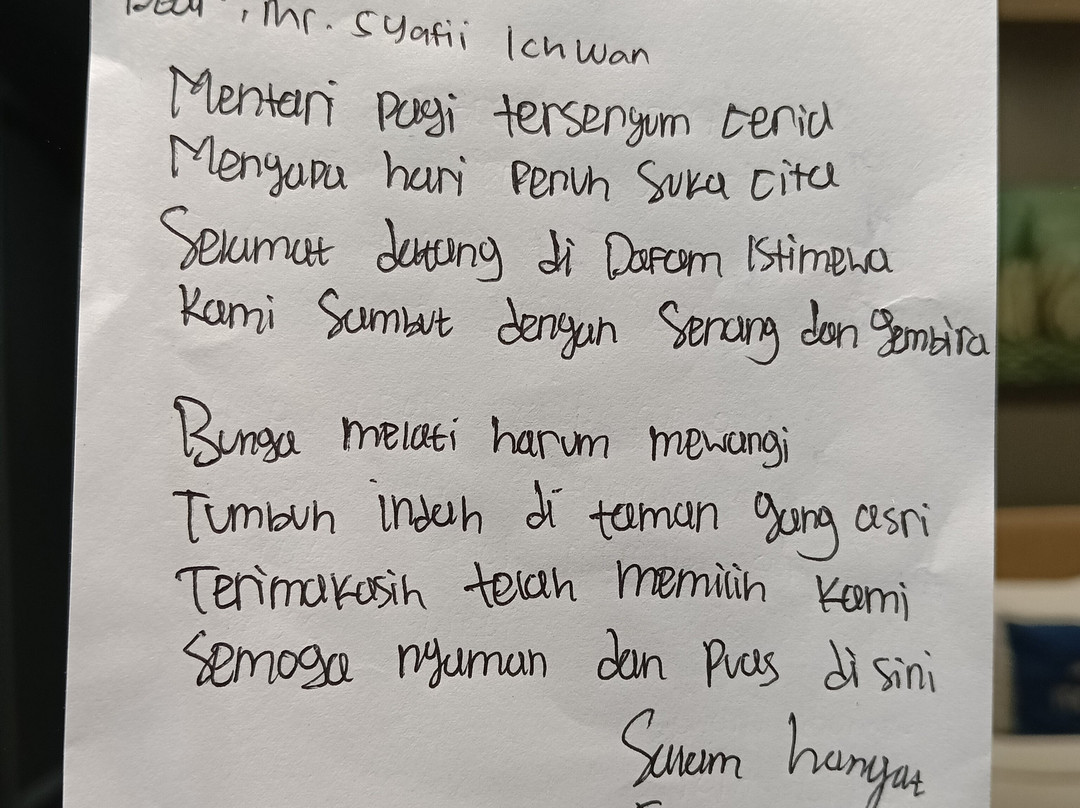 Dear, Mr. Syafii Ichwan
Mentari pagi tersenyum ceria
Menyapa hari penuh suka cita
Selamat datang di Dafam Istimewa
Kami Sambut dengan Senang dan gembira
Bunga melati harum mewangi
Tumbuh indah di taman yang asri
Terimakasih telah memilih kami
Semoga nyaman dan Puas di sini
Salam hangat